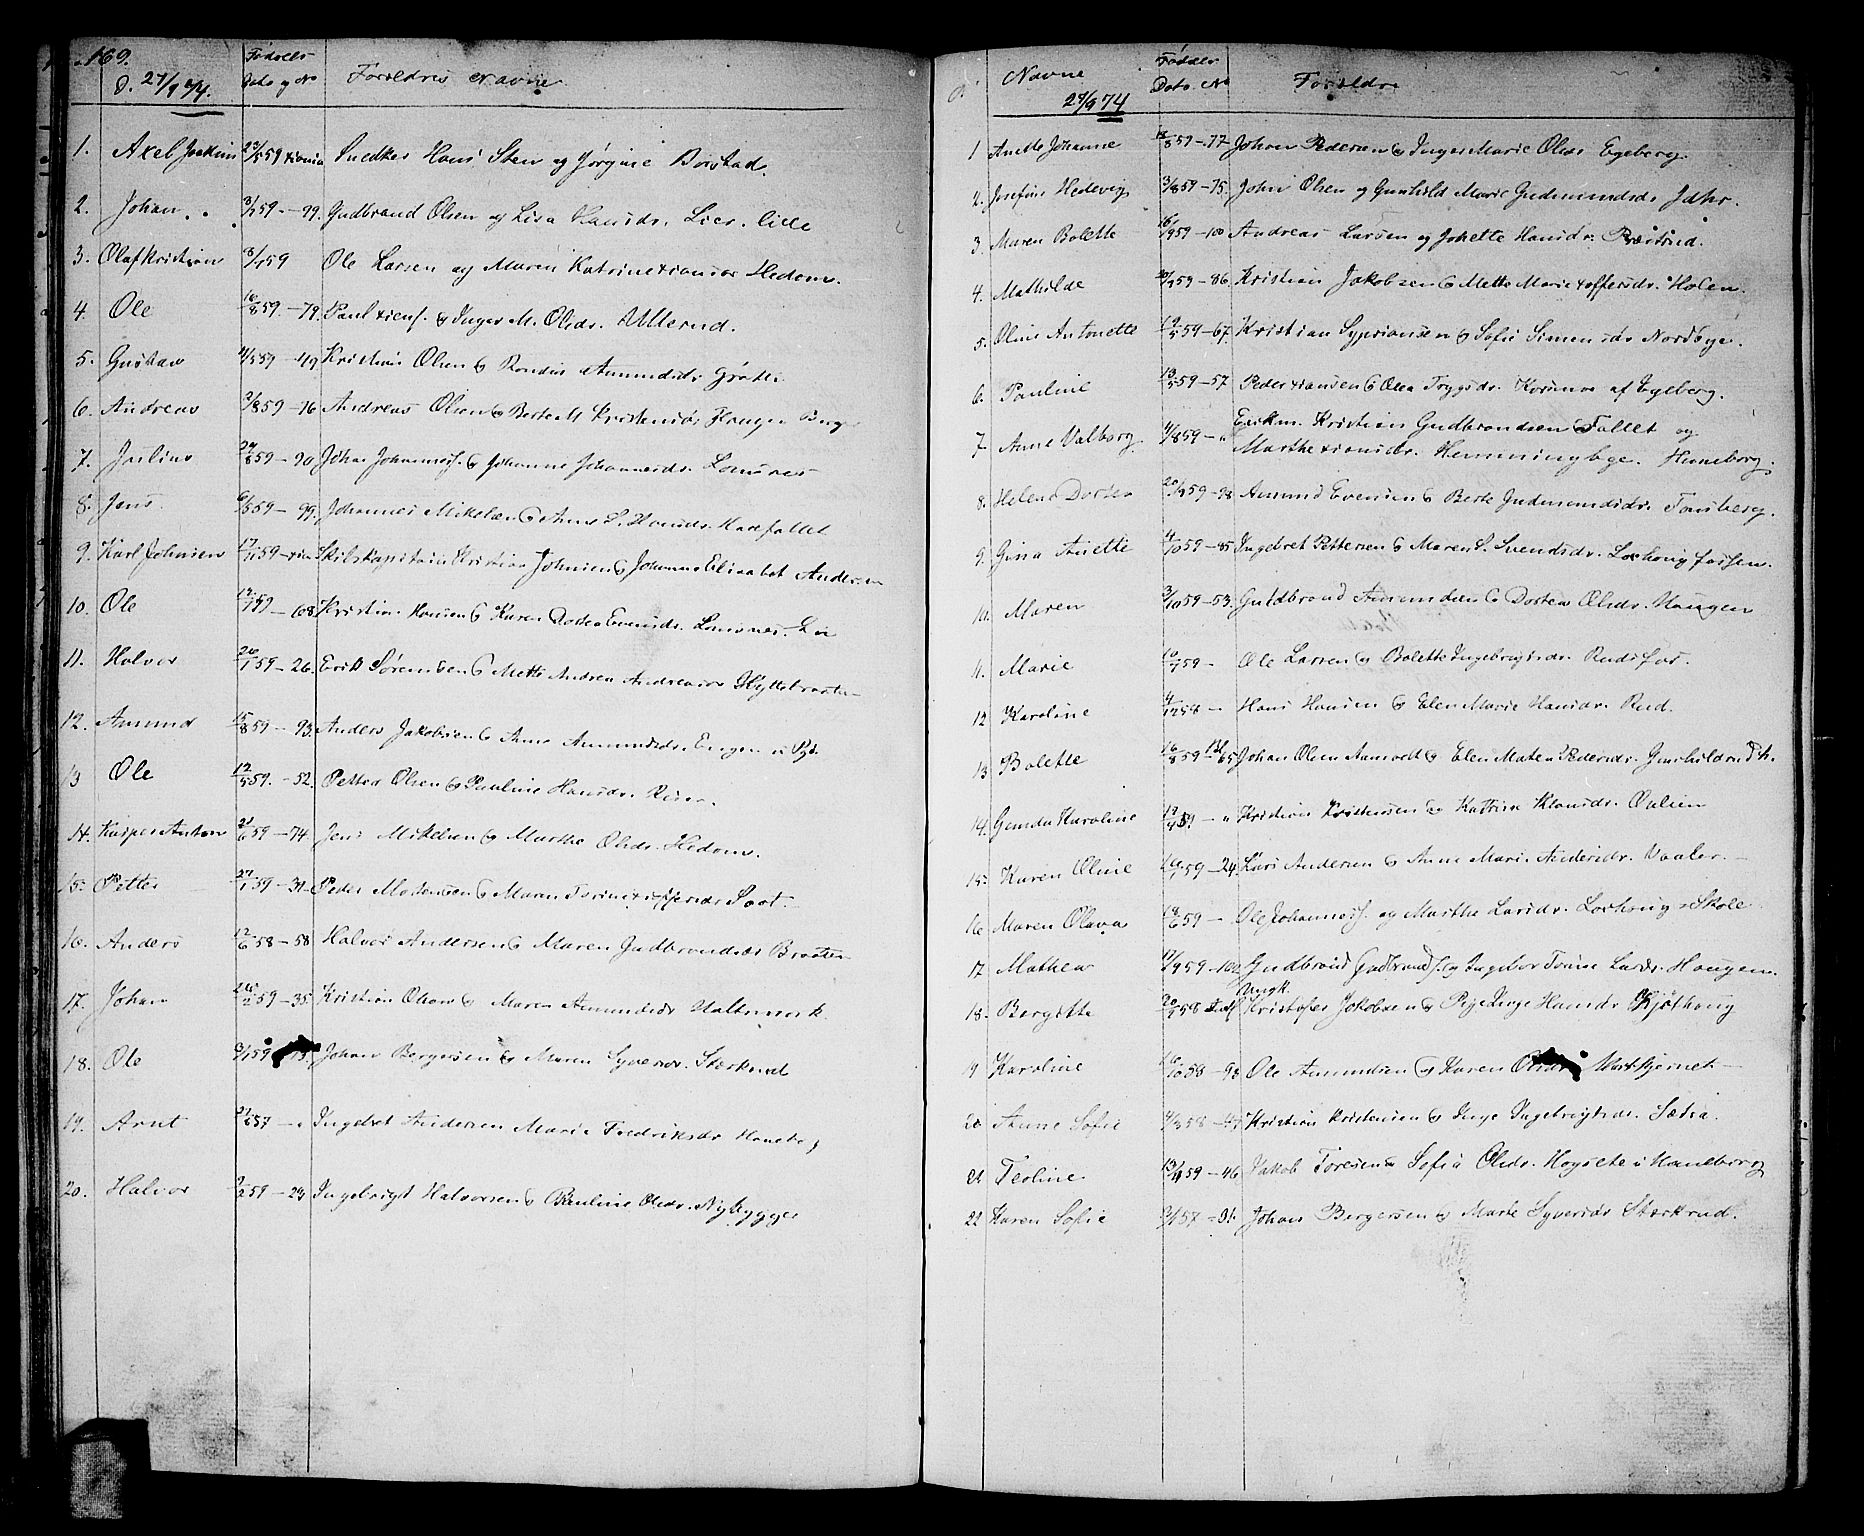 169.
d. 27/9 74.
Fødsels
Dato og No
Forældres Navne
1. Axel Joakim 23/5 59 Xania Snedker Hans Sten og Jørgine Børstad
2. Johan 3/7 59 - 99. Gudbrand Olsen og Lisa Hansdr. Lier lille
3. Olaf Kristian 8/7 59 Ole Larsen og Maren Katrine Xiansdr Hedom.
4. Ole 16/8 59 - 79. Paul Xiens. & Inger M. Olsdr. Ullerud.
5. Gustav 4/5 59 - 49 Kristian Olsen & Rondine Amundsdr
6. Andreas 2/8 59 - 76 Andreas Olsen & Berte M. Kristensdr Haugen
7. Julius 24/8 59 - 90 Johan Johanness. & Johanne Johannesdr. Lomsnes
8. Jens 6/8 59 - 99. Johannes Mikelsen & Anne S. Hansdr.
9. Karl Johnsen 17/11 59 - Xia Skibskapitain Kristian Johnsen & Johanne Elisabet Andersen
10. Ole 19/7 59 - 108 Kristian Hansen & Karen Dortea Evensdr. Lomsnes. Eie
11. Halvor 26/1 59 - 26. Erik Sørensen & Mette Andrea Andreasdr Hyttebraaten
12. Amund 15/8 59 - 93. Anders Jakobsen & Anne Amundsdr. Engen
13 Ole 12/5 59. - 52. Petter Olsen & Pauline Hansdr.
14. Kasper Anton 21/6 59 - 74. Jens Mikelsen & Marthe Olsdr. Hedom.
15. Petter 27/1 59 - 31. Peder Madsensen & Maren Torine Xoffersdr Soot.
16. Anders 12/6 58 - 58 Halvor Andersen & Maren Gudbrandsdr Braaten
17. Johan 24/2 59 - 35. Kristian Olsen & Maren Amundsdr Haltemark.
18. Ole 3/1 59 Johan Bergersen & Maren Syversdr. Stærkrud
19. Arnt 27/8 57 - " Ingebret Andersen Marie Fredriksdr
20. Halvor 9/2 59 - 24 Ingebrigt Halvorsen & Pauline Olsdr. Nybygget
d. Navne
27/9 74
Fødsels
Dato. No
Forældre
1 Anette Johanne 18/8 59 - 77 Johan Pedersen & Inger Marie Olsdr Egeberg.
2. Josefine Hedevig 3/8 59 - 75. John Olsen og Gunhild Marie Gudmundsdr Jahr.
3. Maren Bolette 16/9 59 - 100 Andreas Larsen og Johette Hansdr. Ræstrud.
4. Mathilde 20/7 59 - 86. Kristian Jakobsen & Mette Marie Xoffersdr. Holen.
5. Oline Antonette 19/5 59 - 67. Kristian Syprionsen & Sofie Simensdr Nordbye.
6. Pauline 13/5 59 - 57. Peder Xiansen & Olea Trygsdr. Korsmo af Egeberg.
7. Anne Valborg 4/8 59 - " Enkem. Kristian Gudbrandsen Fallet og
Marthe Xiansdr. Hemmingbye. Henneborg.
8. Helene Dortea 20/9 59 - 98 Amund Evensen & Berte Gudmundsdr. Tonsberg.
9. Gina Anette 4/10 59 - 85 Ingebret Pettersen & Maren S. Svendsdr. Loshougfossen.
10. Maren 3/10 59 - 53. Guldbrand Amundsen & Dortea Olsdr. Haugen
11. Marie 10/7 59 - Ole Larsen & Bolette Ingebrigtsdr. Rudsfos.
12 Karoline 4/12 58 - Hans Hansen & Elen Marie Hansdr. Rud.
13 Bolette 16/8 59 Johan Olsen Aamodt & Elen Matea Pedersdr. Gunhildrud
14. Gunda Karoline 19/4 59. - " Kristian Kristensen & Katrine Klausdr. Ovlien
15. Karen Oline 19/7 59 - 24 Lars Andersen & Anne Marie Andersdr. Vaaler.
16 Maren Olava 18/6 59 - Ole Johanness. og Marthe Larsdr. Loshoug Skole
17 Mathea 17/9 59 - 102 Gudbrand Gudbrands. og Ingebor Torine Larsdr. Haugen.
18. Bergitte 20/7 58 Ungk. Kristofer Jakobsen & Pige Inge Hansdr Kjøthoug
19 Karoline 16/10 58 - 98 Ole Amundsen & Karen Olsdr. Mortkjernet
20 Anne Sofie 4/3 58 - 47 Kristian Kristensen & Inge Ingebrigtsdr. Sætra.
21 Teoline 13/11 59 - 46 Jakob Toresen & Sofia Olsdr. Hogsete i Haneborg
22 Karen Sofie 3/1 57 - 31. Johan Bergersen & Marte Syversdr Stærkrud.